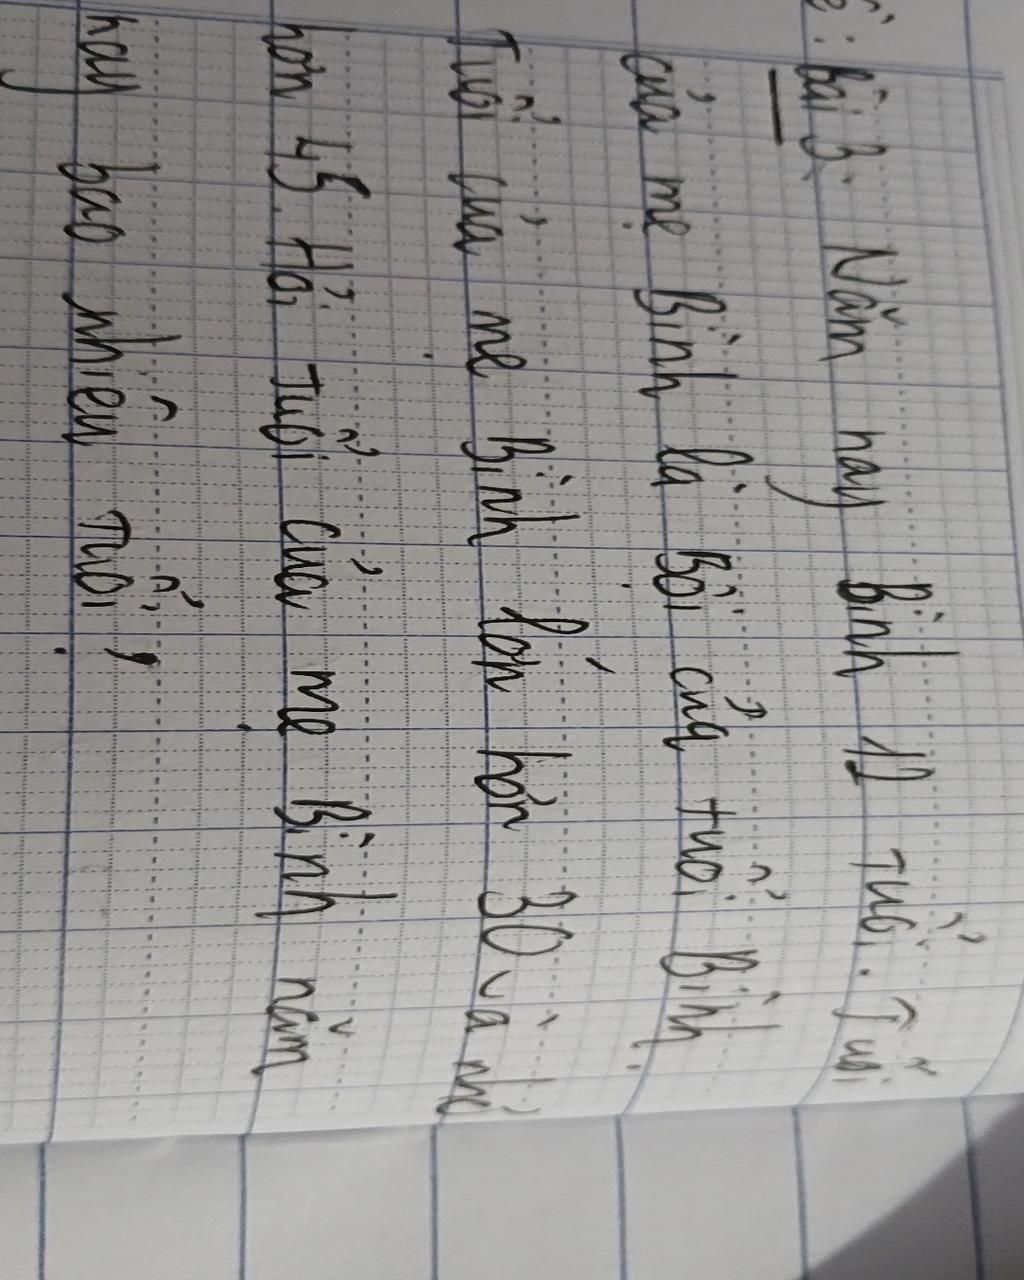 Bài 3: Năm nay Bình 12 tuổi. Tuổi
của mẹ Bình là Bội của tuổi Bình
Tuổi của mẹ Bình lớn hơn 30 và nhỏ
hơn 45. Hỏi tuổi của mẹ Bình năm
nay bao nhiêu tuổi?